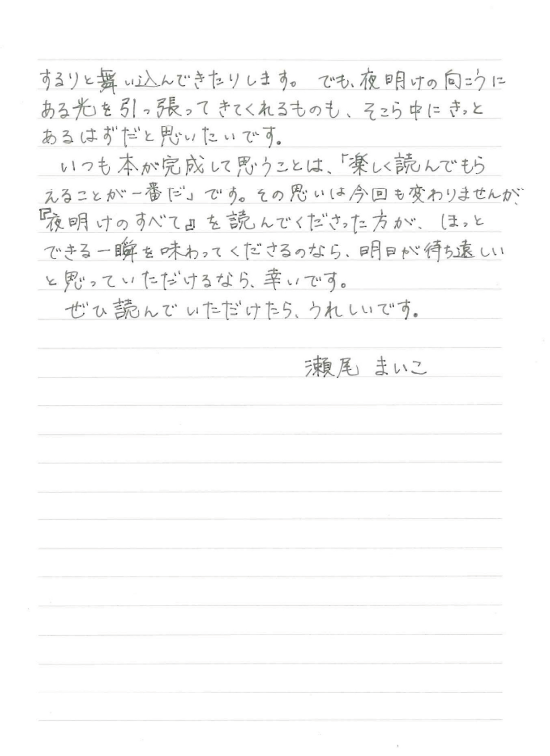 するりと舞い込んできたりします。でも、夜明けの向こうに
ある光を引っ張ってきてくれるものも、そこら中にきっと
あるはずだと思いたいです。
いつも本が完成して思うことは、「楽しく読んでもら
えることが一番だ」です。その思いは今回も変わりませんが、
『夜明けのすべて』を読んでくださった方が、ほっと
できる一瞬を味わってくださるのなら、明日が待ち遠しい
と思っていただけるなら、幸いです。
ぜひ読んでいただけたら、うれしいです。
瀬尾 まいこ